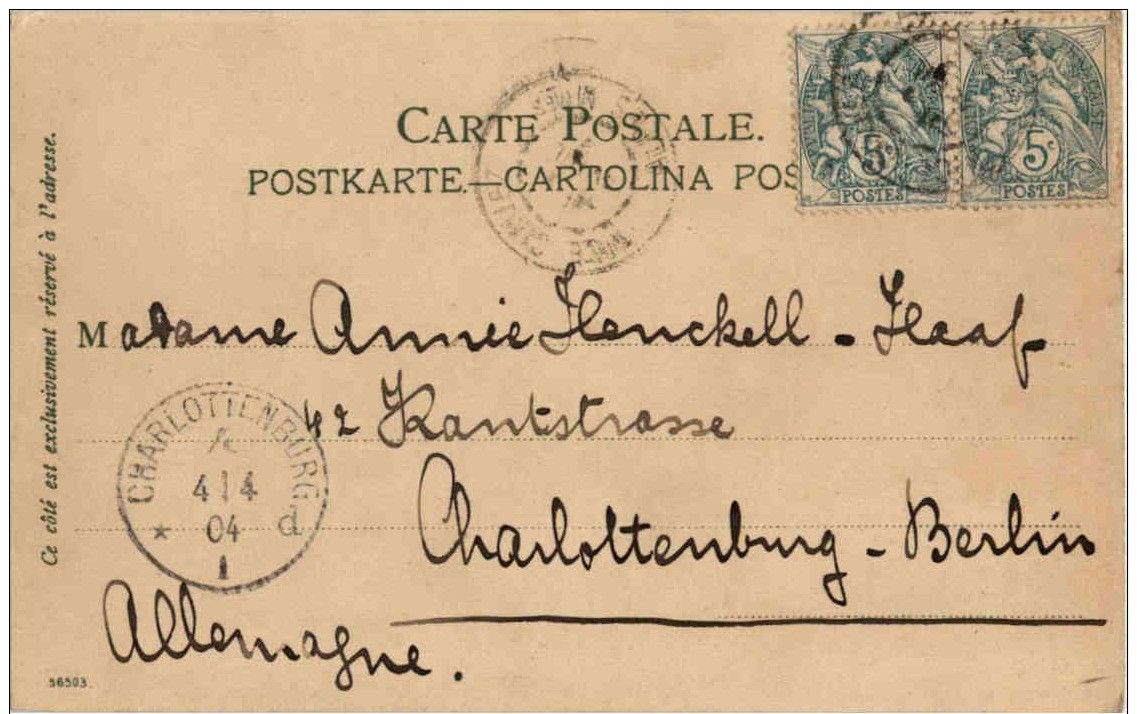 CARTE POSTALE.
POSTKARTE.—CARTOLINA POS
5c
POSTES
5c
POSTES
Ce côté est exclusivement réservé à l'adresse.
Madame Annie Henckell - Haaf
42 Kantstrasse
Charlottenburg - Berlin
Allemagne.
CHARLOTTENBURG
4 4
04 d
1
56503.